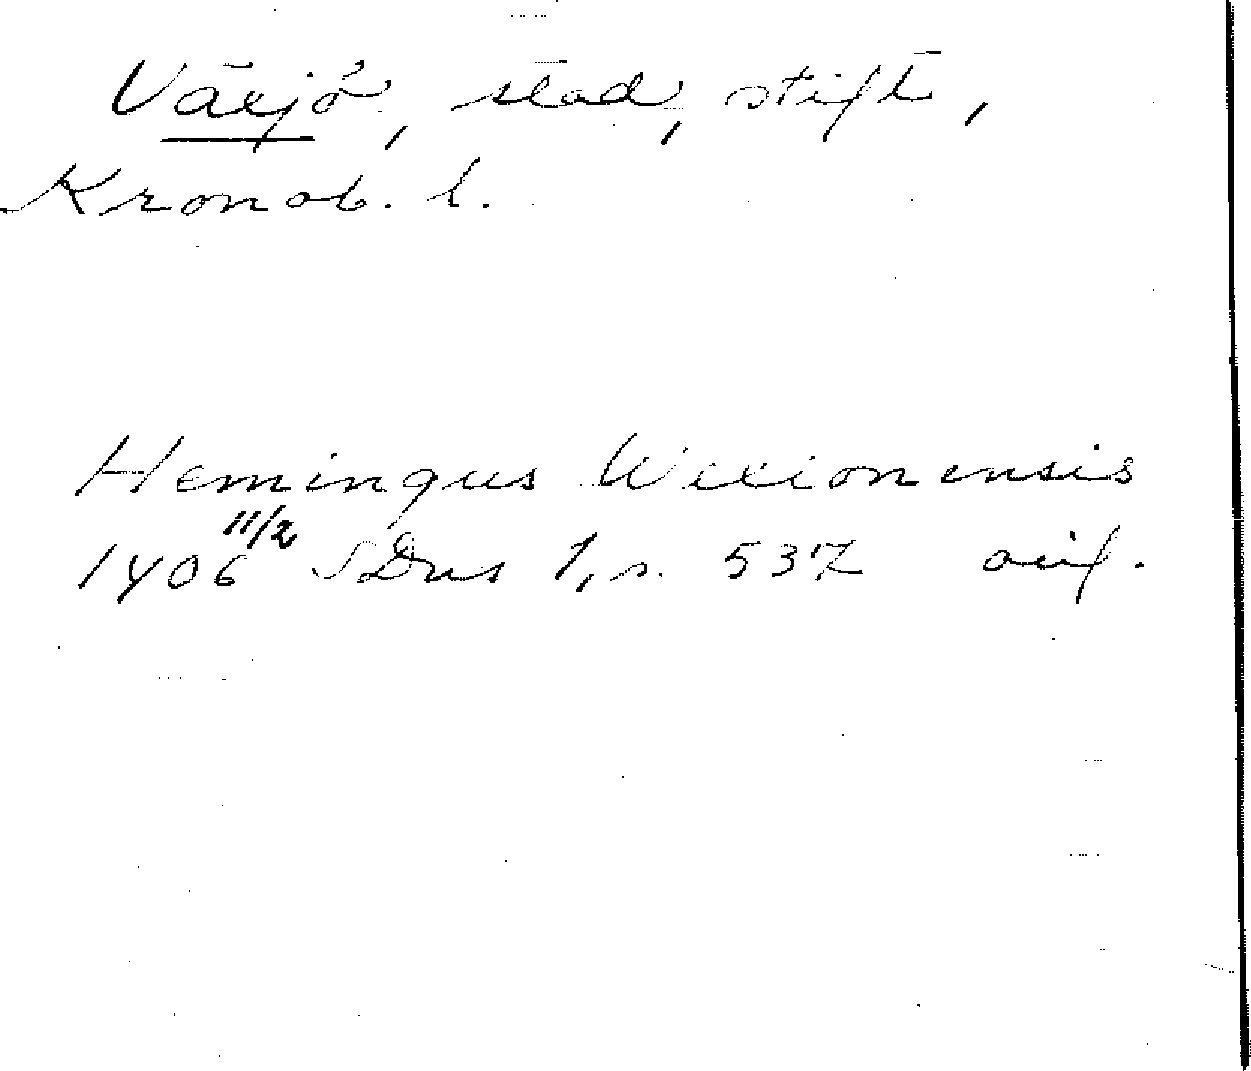 Växjö, stad, stift,
Kronob. l.
Hemingus Wexionensis
1406 11/2 SDns 1, s. 537 avif.